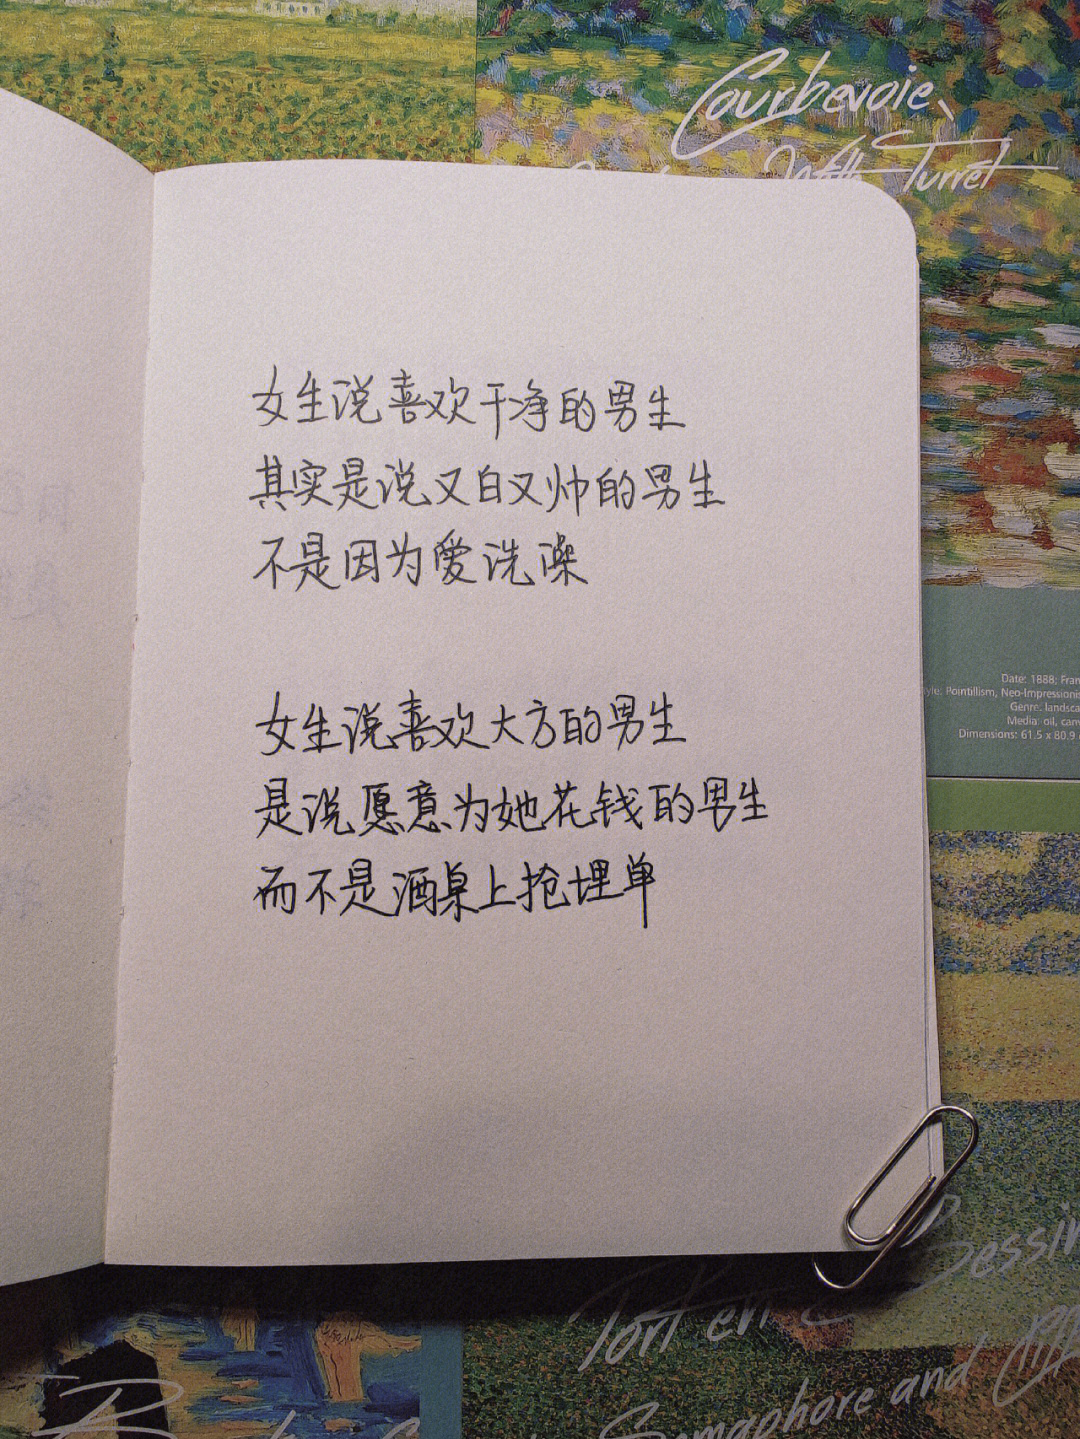 Courbevoie,
With Turret
女生说喜欢干净的男生
其实是说又白又帅的男生
不是因为爱洗澡
女生说喜欢大方的男生
是说愿意为她花钱的男生
而不是酒桌上抢埋单
Date: 1888; Fran
yle: Pointillism, Neo-Impressionis
Genre: landsca
Media: oil, can
Dimensions: 61.5 x 80.9
Bessin
Port en
Semaphore and